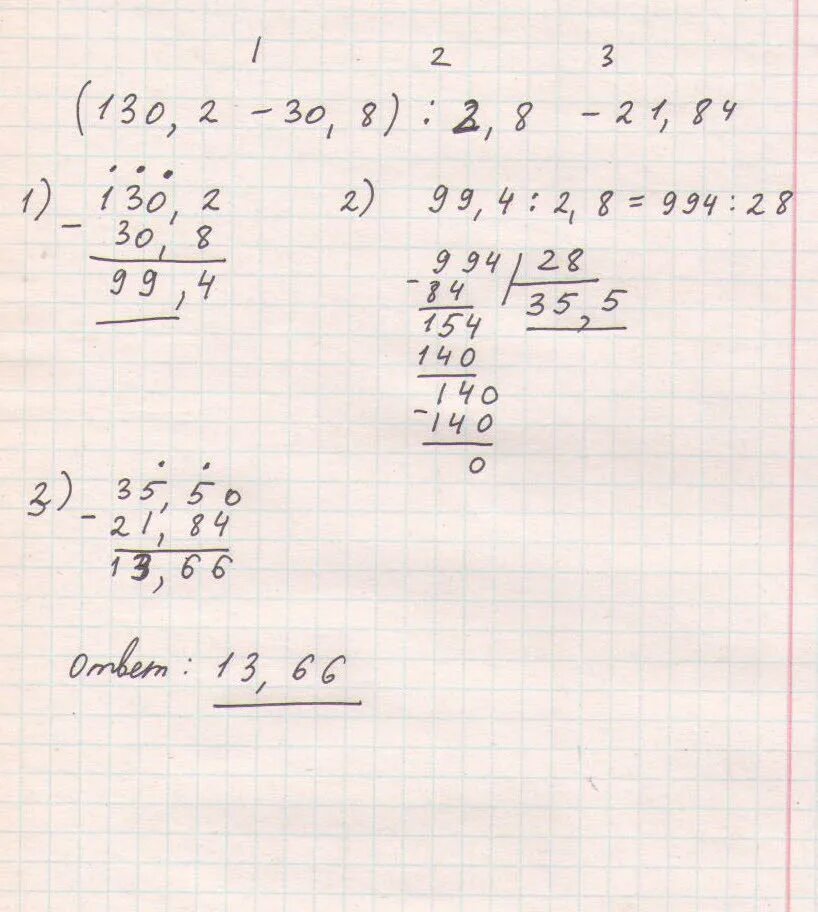 1 2 3
(130,2 - 30,8) : 2,8 - 21,84
1) - 130,2
30,8
99,4
2) 99,4 : 2,8 = 994 : 28
- 994 | 28
84 35,5
154
140
- 140
140
0
3) - 35,50
21,84
13,66
Ответ: 13,66